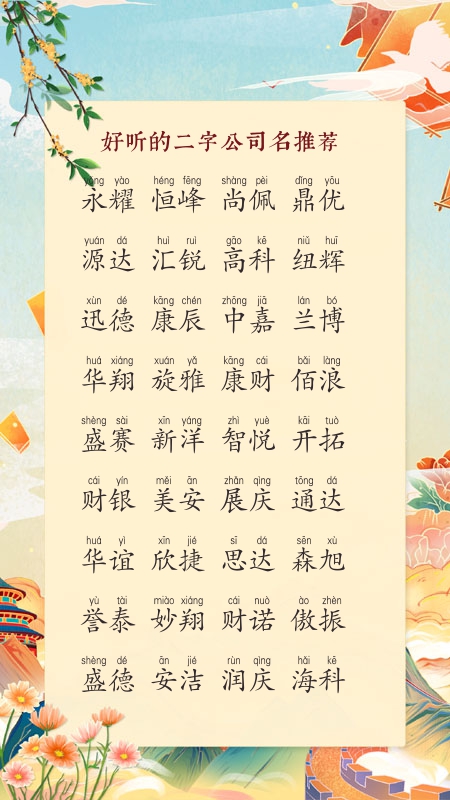 好听的二字公司名推荐
yǒng yào héng fēng shàng pèi dǐng yōu
永耀 恒峰 尚佩 鼎优
yuán dá huì ruì gāo kē niǔ huī
源达 汇锐 高科 纽辉
xùn dé kāng chén zhōng jiā lán bó
迅德 康辰 中嘉 兰博
huá xiáng xuán yǎ kāng cái bǎi làng
华翔 旋雅 康财 佰浪
shèng sài xīn yáng zhì yuè kāi tuò
盛赛 新洋 智悦 开拓
cái yín měi ān zhǎn qìng tōng dá
财银 美安 展庆 通达
huá yì xīn jié sī dá sēn xù
华谊 欣捷 思达 森旭
yù tài miào xiáng cái nuò ào zhèn
誉泰 妙翔 财诺 傲振
shèng dé ān jié rùn qìng hǎi kē
盛德 安洁 润庆 海科